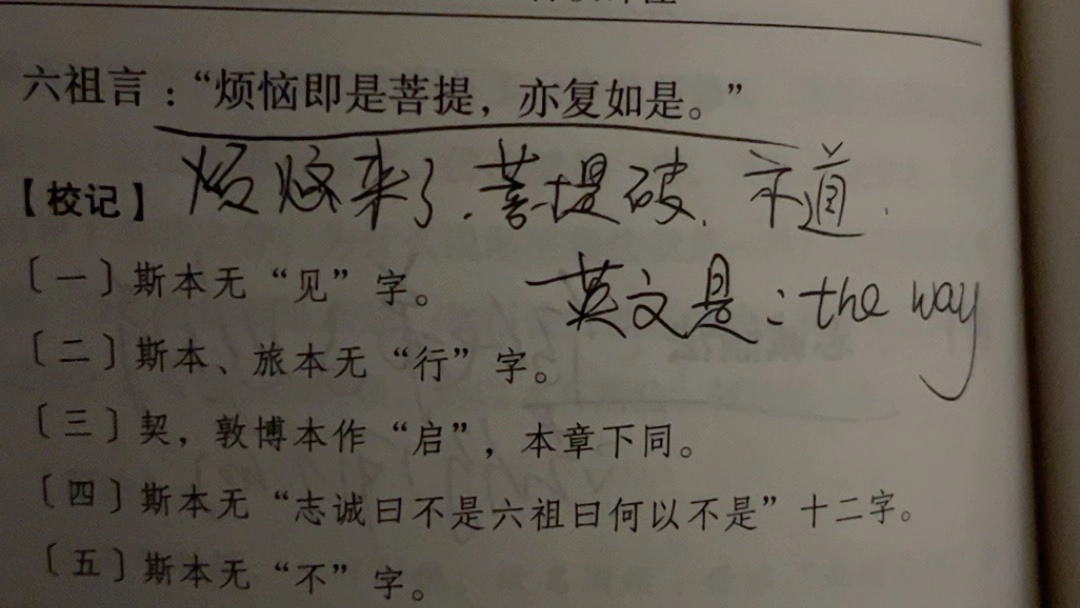 六祖言：“烦恼即是菩提，亦复如是。”
烦恼来了.菩提破.亦道.
【校记】
英文是：the way
〔一〕斯本无“见”字。
〔二〕斯本、旅本无“行”字。
〔三〕契，敦博本作“启”，本章下同。
〔四〕斯本无“志诚曰不是六祖曰何以不是”十二字。
〔五〕斯本无“不”字。